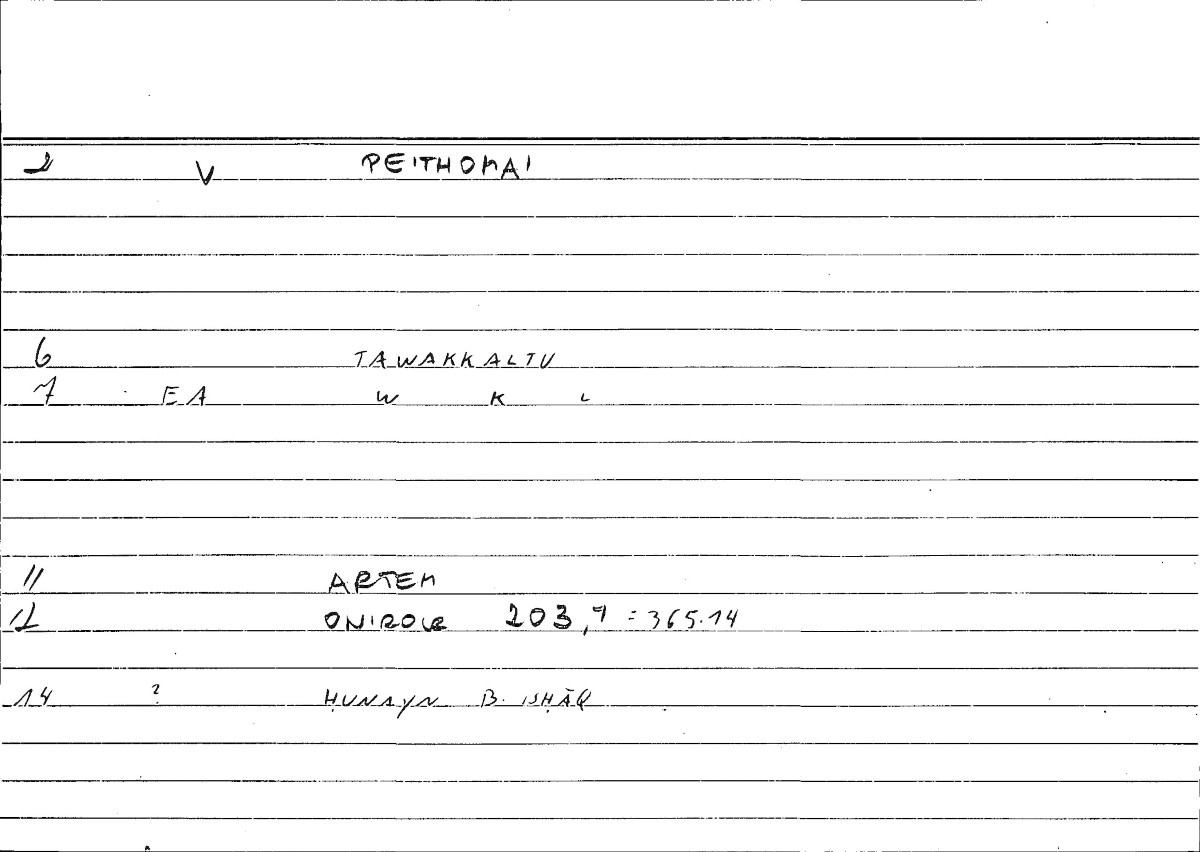 2 V PEITHOMAI
6 TAWAKKALTU
7 EA W K L
11 ARTEM
12 ONIROCR 203,7 = 365.14
14 ? ḤUNAYN B. ISḤĀQ